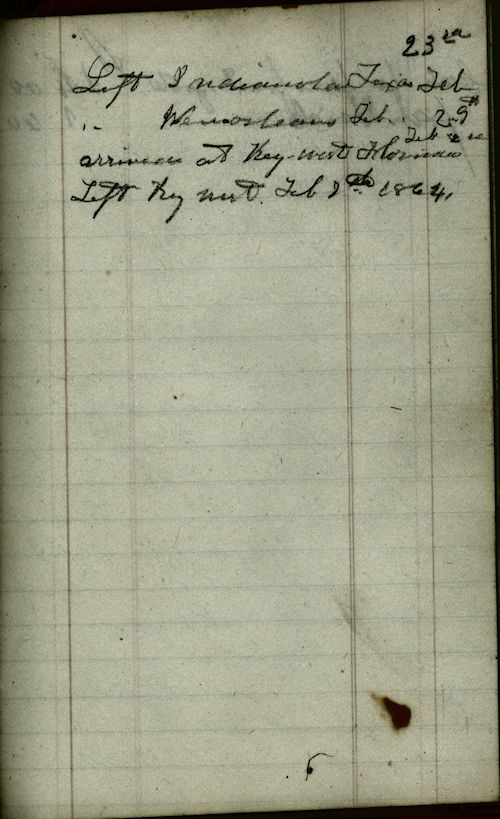 23rd
Left Indianola Texas Feb
" Neworleans Feb. 29th
Feb
arrived at Key-west Florida
Left Key west. Feb 9th 1864.